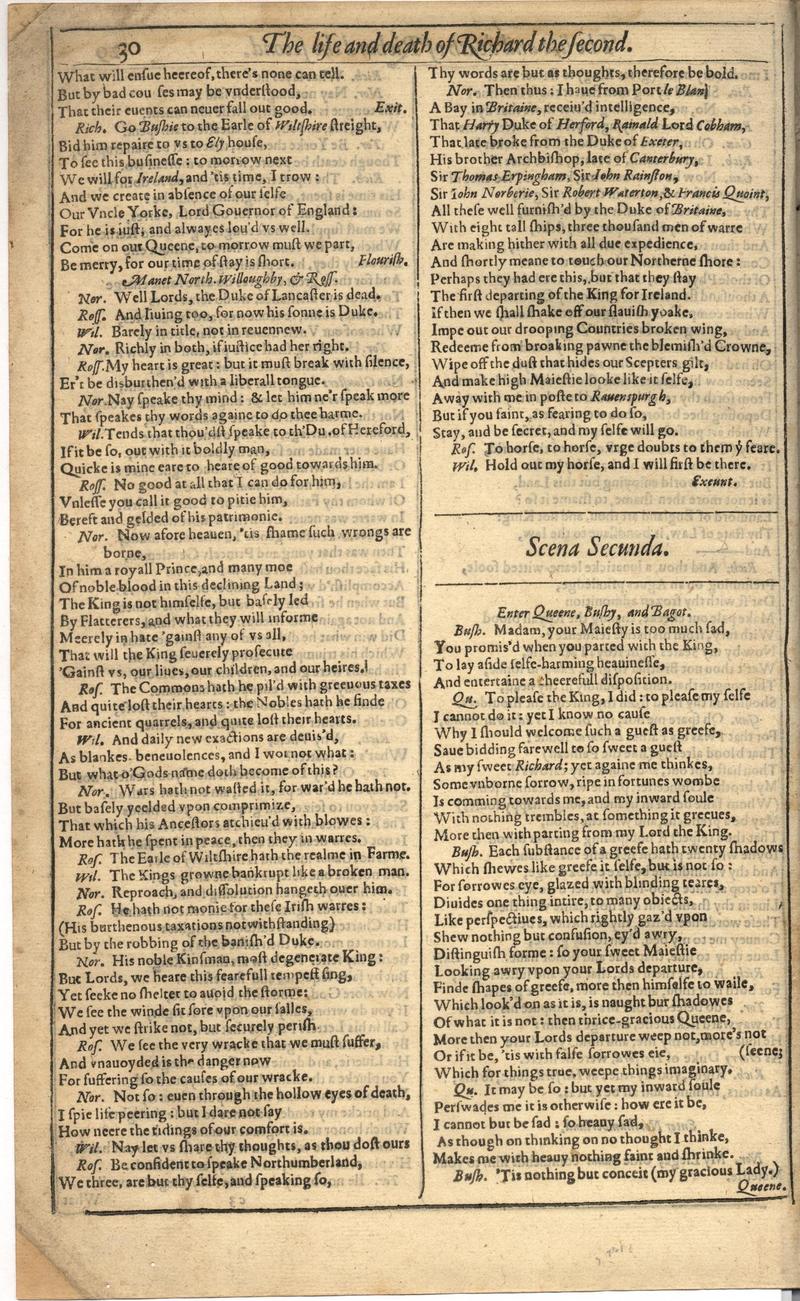 30
The life and death of Richard the ſecond.
What will enſue heereof, there's none can tell.
But by bad courſes may be vnderſtood,
That their euents can neuer fall out good. Exit.
Rich. Go Buſhie to the Earle of Wiltſhire ſtreight,
Bid him repaire to vs to Ely houſe,
To ſee this buſineſſe : to morrow next
We will for Ireland, and 'tis time, I trow :
And we create in abſence of our ſelfe
Our Vncle Yorke, Lord Gouernor of England :
For he is iuſt, and alwayes lou'd vs well.
Come on our Queene, to morrow muſt we part,
Be merry, for our time of ſtay is ſhort. Flouriſh.
Manet North. Willoughby, & Roſſ.
Nor. Well Lords, the Duke of Lancaſter is dead.
Roſſ. And liuing too, for now his ſonne is Duke.
Wil. Barely in title, not in reuennew.
Nor. Richly in both, if iuſtice had her right.
Roſſ. My heart is great : but it muſt break with ſilence,
Er't be disburthen'd with a liberall tongue.
Nor. Nay ſpeake thy mind : & let him ne'r ſpeak more
That ſpeakes thy words againe to do thee harme.
Wil. Tends that thou'dſt ſpeake to th'Du. of Hereford,
If it be ſo, out with it boldly man,
Quicke is mine eare to heare of good towards him.
Roſſ. No good at all that I can do for him,
Vnleſſe you call it good to pitie him,
Bereft and gelded of his patrimonie.
Nor. Now afore heauen, 'tis ſhame ſuch wrongs are
borne,
In him a royall Prince, and many moe
Of noble blood in this declining Land ;
The King is not himſelfe, but baſely led
By Flatterers, and what they will informe
Meerely in hate 'gainſt any of vs all,
That will the King ſeuerely proſecute
'Gainſt vs, our liues, our children, and our heires.
Roſ. The Commons hath he pil'd with greeuous taxes
And quite loſt their hearts : the Nobles hath he finde
For ancient quarrels, and quite loſt their hearts.
Wil. And daily new exactions are deuis'd,
As blankes, beneuolences, and I wot not what :
But what o'Gods name doth become of this?
Nor. Wars hath not waſted it, for war'd he hath not.
But baſely yeelded vpon comprimize,
That which his Anceſtors atchieu'd with blowes :
More hath he ſpent in peace, then they in warres.
Roſ. The Earle of Wiltſhire hath the realme in Farme.
Wil. The Kings growne bankrupt like a broken man.
Nor. Reproach, and diſſolution hangeth ouer him.
Roſ. He hath not monie for theſe Iriſh warres :
(His burthenous taxations notwithſtanding)
But by the robbing of the baniſh'd Duke.
Nor. His noble Kinſman, moſt degenerate King :
But Lords, we heare this fearefull tempeſt ſing,
Yet ſeeke no ſhelter to auoid the ſtorme :
We ſee the winde ſit ſore vpon our ſalles,
And yet we ſtrike not, but ſecurely periſh.
Roſ. We ſee the very wracke that we muſt ſuffer,
And vnauoyded is the danger now
For ſuffering ſo the cauſes of our wracke.
Nor. Not ſo : euen through the hollow eyes of death,
I ſpie life peering : but I dare not ſay
How neere the tidings of our comfort is.
Wil. Nay let vs ſhare thy thoughts, as thou doſt ours
Roſ. Be confident to ſpeake Northumberland,
We three, are but thy ſelfe, and ſpeaking ſo,
Thy words are but as thoughts, therefore be bold.
Nor. Then thus : I haue from Port le Blan
A Bay in Britaine, receiu'd intelligence,
That Harry Duke of Herford, Rainald Lord Cobham,
That late broke from the Duke of Exeter,
His brother Archbiſhop, late of Canterbury,
Sir Thomas Erpingham, Sir Iohn Rainſton,
Sir Iohn Norberie, Sir Robert Waterton, & Francis Quoint,
All theſe well furniſh'd by the Duke of Britaine,
With eight tall ſhips, three thouſand men of warre
Are making hither with all due expedience,
And ſhortly meane to touch our Northerne ſhore :
Perhaps they had ere this, but that they ſtay
The firſt departing of the King for Ireland.
If then we ſhall ſhake off our ſlauiſh yoake,
Impe out our drooping Countries broken wing,
Redeeme from broaking pawne the blemiſh'd Crowne,
Wipe off the duſt that hides our Scepters gilt,
And make high Maieſtie looke like it ſelfe,
Away with me in poſte to Rauenspurgh,
But if you faint, as fearing to do ſo,
Stay, and be ſecret, and my ſelfe will go.
Roſ. To horſe, to horſe, vrge doubts to them ẏ feare.
Wil. Hold out my horſe, and I will firſt be there.
Exeunt.
Scena Secunda.
Enter Queene, Buſhy, and Bagot.
Buſh. Madam, your Maieſty is too much ſad,
You promis'd when you parted with the King,
To lay aſide ſelfe-harming heauineſſe,
And entertaine a cheerefull diſpoſition.
Qu. To pleaſe the King, I did : to pleaſe my ſelfe
I cannot do it : yet I know no cauſe
Why I ſhould welcome ſuch a gueſt as greefe,
Saue bidding farewell to ſo ſweet a gueſt
As my ſweet Richard; yet againe me thinkes,
Some vnborne ſorrow, ripe in fortunes wombe
Is comming towards me, and my inward ſoule
With nothing trembles, at ſomething it greeues,
More then with parting from my Lord the King.
Buſh. Each ſubſtance of a greefe hath twenty ſhadows
Which ſhewes like greefe it ſelfe, but is not ſo :
For ſorrowes eye, glazed with blinding teares,
Diuides one thing intire, to many obiects,
Like perſpectiues, which rightly gaz'd vpon
Shew nothing but confuſion, ey'd awry,
Diſtinguiſh forme : ſo your ſweet Maieſtie
Looking awry vpon your Lords departure,
Finde ſhapes of greefe, more then himſelfe to waile,
Which look'd on as it is, is naught bur ſhadowes
Of what it is not : then thrice-gracious Queene,
More then your Lords departure weep not, more's not
Or if it be, 'tis with falſe ſorrowes eie, (ſeene;
Which for things true, weepe things imaginary.
Qu. It may be ſo : but yet my inward ſoule
Perſwades me it is otherwiſe : how ere it be,
I cannot but be ſad : ſo heauy ſad,
As though on thinking on no thought I thinke,
Makes me with heauy nothing faint and ſhrinke.
Buſh. 'Tis nothing but conceit (my gracious Lady.)
Queene.